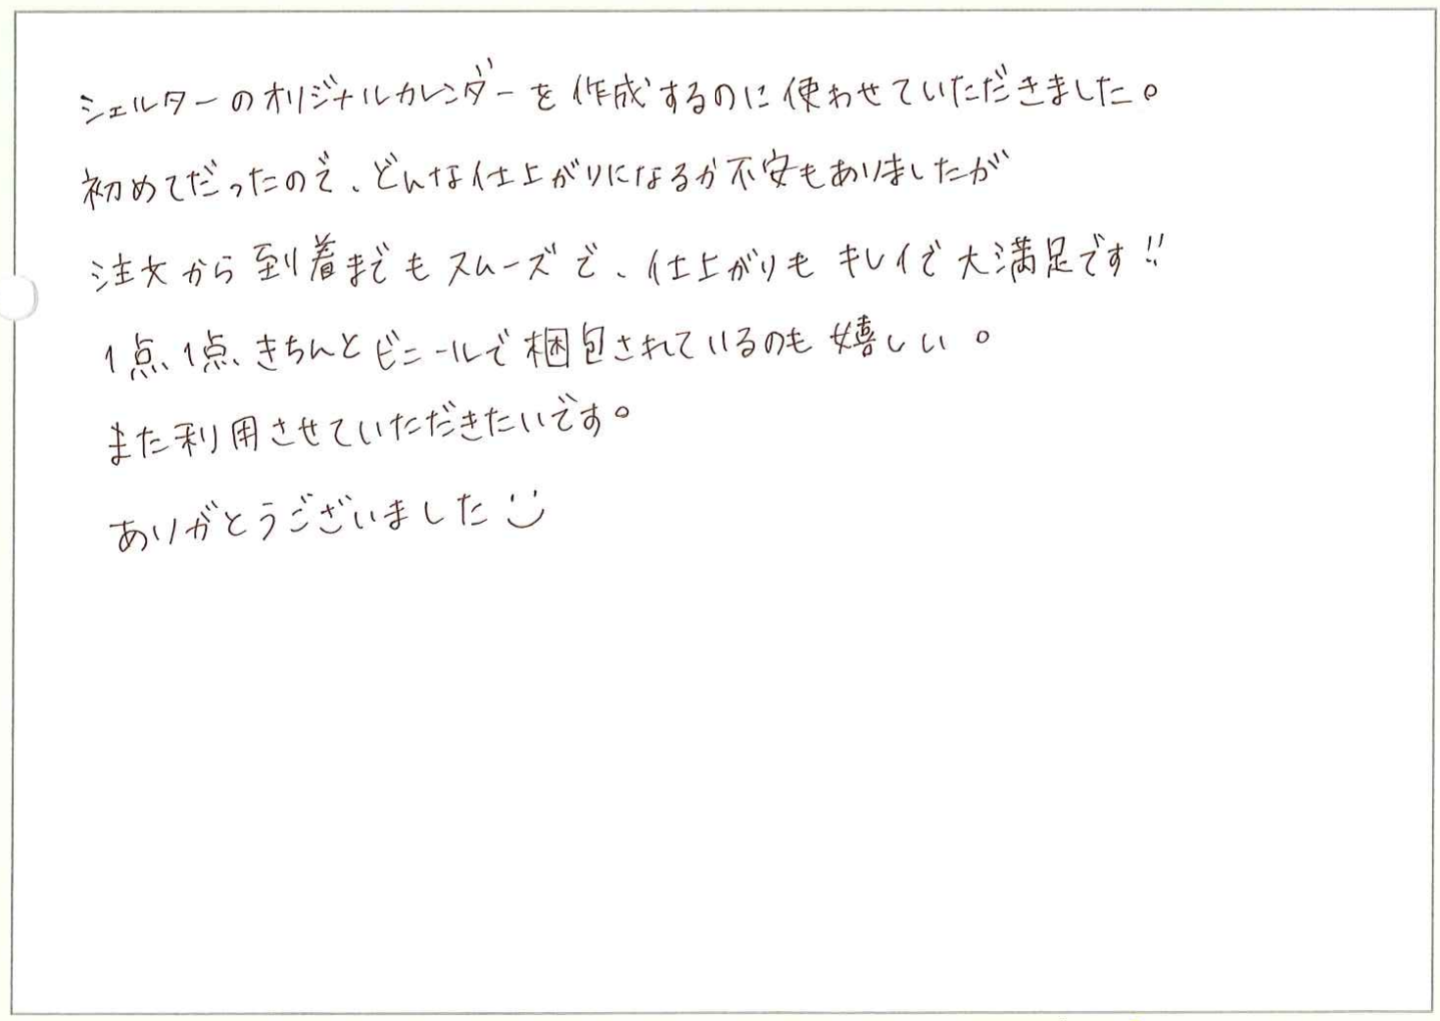 シェルターのオリジナルカレンダーを作成するのに使わせていただきました。
初めてだったので、どんな仕上がりになるか不安もありましたが
注文から到着までもスムーズで、仕上がりもキレイで大満足です!!
1点、1点、きちんとビニールで梱包されているのも嬉しい。
また利用させていただきたいです。
ありがとうございました